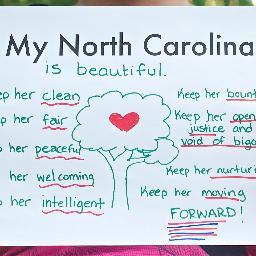 My North Carolina
is beautiful.
her clean
her fair
her peaceful
her welcoming
her intelligent
Keep her
Keep her open
justice and
void of
Keep her
Keep her moving
FORWARD!